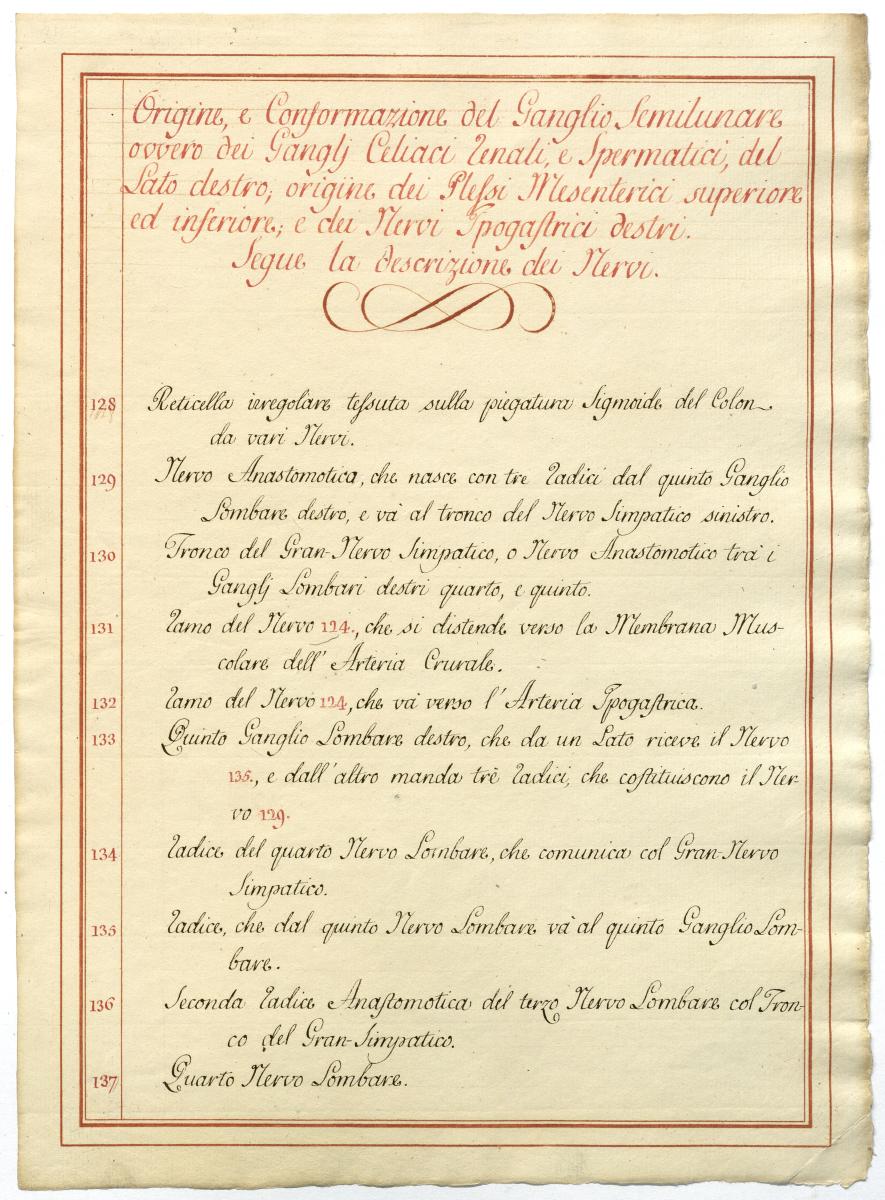 Origine, e Conformazione del Ganglio Semilunare
ovvero dei Ganglj Celiaci Renali, e Spermatici, del
Lato destro; origine dei Plessi Mesenterici superiore
ed inferiore; e dei Nervi Ipogastrici destri.
Segue la descrizione dei Nervi.
128 Reticella irregolare tessuta sulla piegatura Sigmoide del Colon
da vari Nervi.
129 Nervo Anastomotica, che nasce con tre Radici dal quinto Ganglio
Lombare destro, e và al tronco del Nervo Simpatico sinistro.
130 Tronco del Gran-Nervo Simpatico, o Nervo Anastomotico trà i
Ganglj Lombari destri quarto, e quinto.
131 Ramo del Nervo 124., che si distende verso la Membrana Mus-
colare dell' Arteria Crurale.
132 Ramo del Nervo 124, che và verso l'Arteria Ipogastrica.
133 Quinto Ganglio Lombare destro, che da un Lato riceve il Nervo
135., e dall'altro manda trè Radici, che costituiscono il Ner-
vo 129.
134 Radice del quarto Nervo Lombare, che comunica col Gran-Nervo
Simpatico.
135 Radice, che dal quinto Nervo Lombare và al quinto Ganglio Lom-
bare.
136 Seconda Radice Anastomotica del terzo Nervo Lombare col Tron-
co del Gran-Simpatico.
137 Quarto Nervo Lombare.